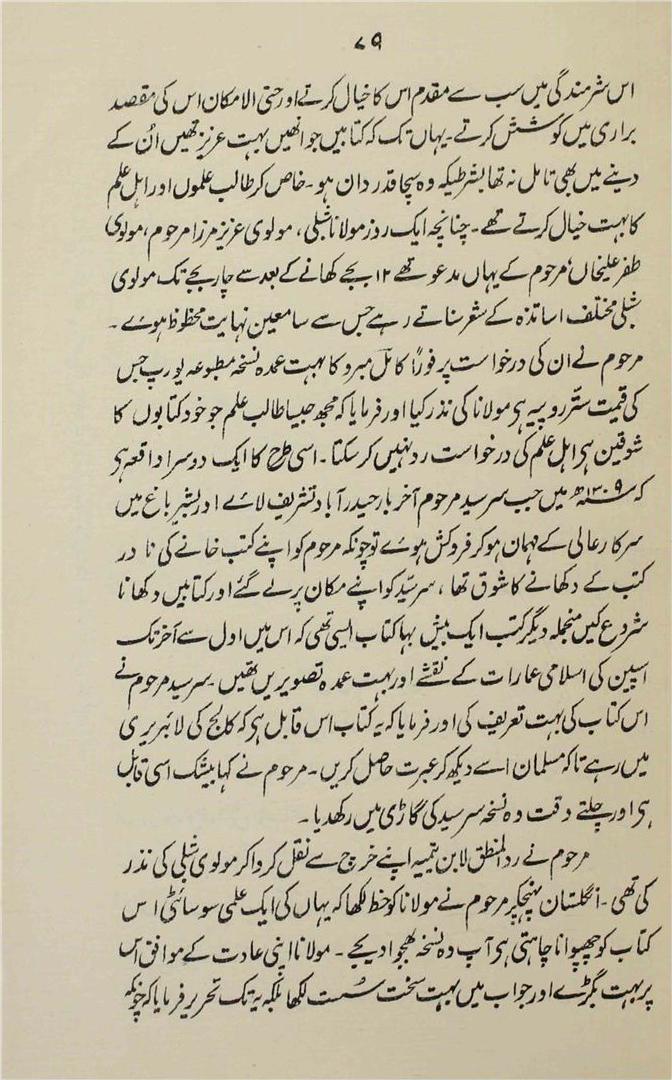 ۷۹
اس شرمندگی میں سب سے مقدم اس کا خیال کرتے اور حتی الامکان اس کی مقصد
براری میں کوشش کرتے۔ یہاں تک کہ کتابیں جو انھیں بہت عزیز تھیں اُن کے
دینے میں بھی تامل نہ تھا بشرطیکہ وہ سچا قدردان ہو۔ خاص کر طالب علموں اور اہل علم
کا بہت خیال کرتے تھے۔ چنانچہ ایک روز مولانا شبلی، مولوی عزیز مرزا مرحوم، مولوی
ظفر علیخاں، مرحوم کے یہاں مدعو تھے ۱۲ بجے کھانے کے بعد سے چار بجے تک مولوی
شبلی مختلف اساتذہ کے شعر سناتے رہے جس سے سامعین نہایت محظوظ ہوئے۔
مرحوم نے ان کی درخواست پر فوراً کامل مبرد کا بہت عمدہ نسخہ مطبوعہ یورپ جس
کی قیمت ستّر روپیہ ہی مولانا کی نذر کیا اور فرمایا کہ مجھ جیسا طالب علم جو خود کتابوں کا
شوقین ہی اہل علم کی درخواست رد نہیں کر سکتا۔ اسی طرح کا ایک دوسرا واقعہ ہی
کہ سنہ ۱۳۰۹ھ میں جب سر سید مرحوم آخر بار حیدرآباد تشریف لائے اور بشیر باغ میں
سرکار عالی کے مہمان ہو کر فروکش ہوئے تو چونکہ مرحوم کو اپنے کتب خانے کی نادر
کتب کے دکھانے کا شوق تھا، سر سیّد کو اپنے مکان پر لے گئے اور کتابیں دکھانا
شروع کیں منجملہ دیگر کتب ایک بیش بہا کتاب ایسی تھی کہ اس میں اول سے آخر تک
اسپین کی اسلامی عمارات کے نقشے اور بہت عمدہ تصویریں تھیں۔ سر سید مرحوم نے
اس کتاب کی بہت تعریف کی اور فرمایا کہ یہ کتاب اس قابل ہی کہ کالج کی لائبریری
میں رہے تاکہ مسلمان اسے دیکھ کر عبرت حاصل کریں۔ مرحوم نے کہا بیشک اسی قابل
ہی اور چلتے وقت وہ نسخہ سر سید کی گاڑی میں رکھدیا۔
مرحوم نے رد المنطق لابن تیمیہ اپنے خرچ سے نقل کروا کر مولوی شبلی کی نذر
کی تھی۔ انگلستان پہنچکر مرحوم نے مولانا کو خط لکھا کہ یہاں کی ایک علمی سوسائٹی اس
کتاب کو چھپوانا چاہتی ہی آپ وہ نسخہ بھجوا دیجے۔ مولانا اپنی عادت کے موافق اس
پر بہت بگڑے اور جواب میں بہت سخت سُست لکھا بلکہ یہ تک تحریر فرمایا کہ چونکہ